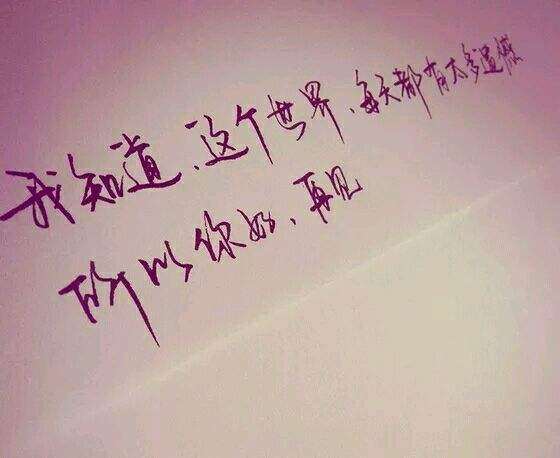 我知道、这个世界、每天都有太多遗憾
所以你好、再见